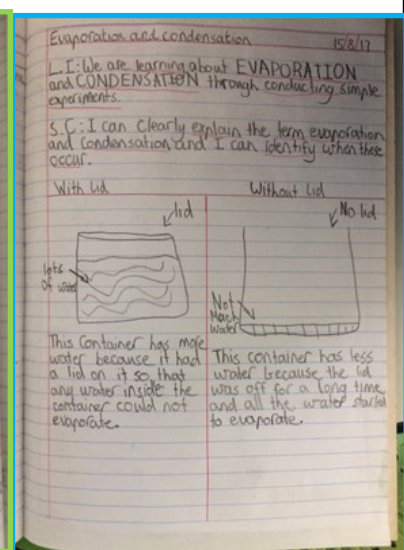 Evaporation and condensation 15/8/17
L.I: We are learning about EVAPORATION
and CONDENSATION through conducting simple
experiments.
S.C: I can clearly explain the term evaporation
and condensation and I can identify when these
occur.
With lid
Without Lid
lid
No lid
lots
of water
Not
Much
Water
This container has more
water because it had
a lid on it so that
any water inside the
container could not
evaporate.
This container has less
water because the lid
was off for a long time
and all the water started
to evaporate.